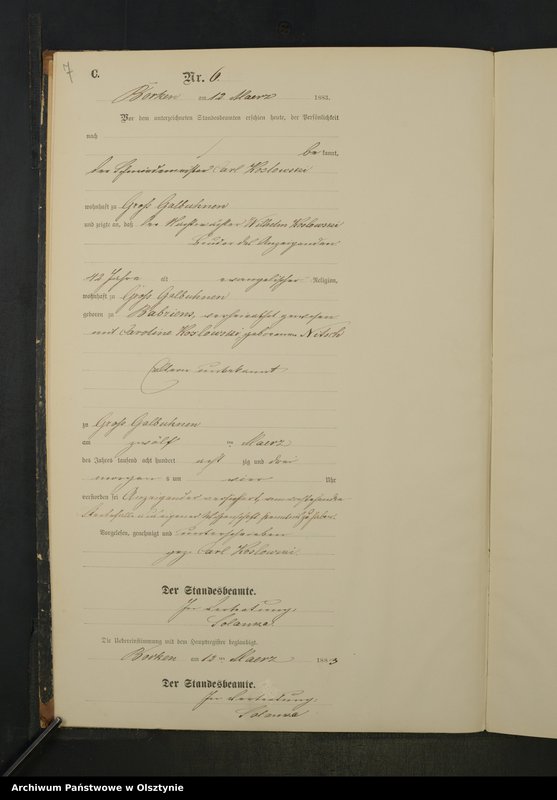 7
C.
Nr. 6.
Borken am 12 Maerz 1883.
Vor dem unterzeichneten Standesbeamten erschien heute, der Persönlichkeit
nach
bekannt,
der Carl Koslowski
wohnhaft zu Groß Galbuhnen
und zeigte an, daß der Wilhelm Koslowski
Bruder des Anzeigenden
42 Jahre alt evangelischer Religion,
wohnhaft zu Groß Galbuhnen
geboren zu Babziens, verheirathet gewesen
mit Caroline Koslowski geborenen
Eltern unbekannt
zu Groß Galbuhnen
am zwölf ten Maerz
des Jahres tausend acht hundert acht zig und drei
morgens um vier Uhr
verstorben sei Anzeigender versichert von vorstehendem
Sterbefalle aus eigener Wissenschaft Kenntniß zu haben.
Vorgelesen, genehmigt und unterschrieben
gez. Carl Koslowski.
Der Standesbeamte.
In Vertretung:
Solanka.
Die Uebereinstimmung mit dem Hauptregister beglaubigt.
Borken am 12 ten Maerz 1883
Der Standesbeamte.
In Vertretung:
Solanka
Archiwum Państwowe w Olsztynie